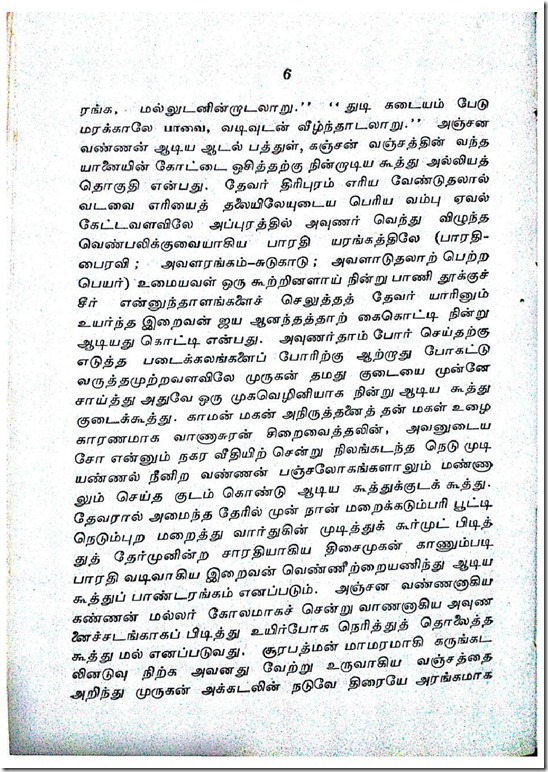 6
ரங்க, மல்லுடனின்றாடலாறு.” “துடி கடையம் பேடு
மரக்காலே பாவை, வடிவுடன் வீழ்ந்தாடலாறு.” அஞ்சன
வண்ணன் ஆடிய ஆடல் பத்துள், கஞ்சன் வஞ்சத்தின் வந்த
யானையின் கோட்டை ஒசித்தற்கு நின்றாடிய கூத்து அல்லியத்
தொகுதி என்பது. தேவர் திரிபுரம் எரிய வேண்டுதலால்
வடவை எரியைத் தலையிலேயுடைய பெரிய வம்பு ஏவல்
கேட்டவளவிலே அப்புரத்தில் அவுணர் வெந்து விழுந்த
வெண்பலிக்குவையாகிய பாரதி யரங்கத்திலே (பாரதி-
பைரவி ; அவளரங்கம்-சுடுகாடு ; அவளாடுதலாற் பெற்ற
பெயர்) உமையவள் ஒரு கூற்றினளாய் நின்று பாணி தூக்குச்
சீர் என்னுந்தாளங்களைச் செலுத்தத் தேவர் யாரினும்
உயர்ந்த இறைவன் ஜய ஆனந்தத்தாற் கைகொட்டி நின்று
ஆடியது கொட்டி என்பது. அவுணர்தாம் போர் செய்தற்கு
எடுத்த படைக்கலங்களைப் போரிற்கு ஆற்றாது போகட்டு
வருத்தமுற்றவளவிலே முருகன் தமது குடையை முன்னே
சாய்த்து அதுவே ஒரு முகவெழினியாக நின்று ஆடிய கூத்து
குடைக்கூத்து. காமன் மகன் அநிருத்தனைத் தன் மகள் உழை
காரணமாக வாணாசுரன் சிறைவைத்தலின், அவனுடைய
சோ என்னும் நகர வீதியிற் சென்று நிலங்கடந்த நெடு முடி
யண்ணல் நீனிற வண்ணன் பஞ்சலோகங்களாலும் மண்ணா
லும் செய்த குடம் கொண்டு ஆடிய கூத்துக்குடக் கூத்து.
தேவரால் அமைந்த தேரில் முன் நான் மறைக்கடும்பரி பூட்டி
நெடும்புற மறைத்து வார்துகின் முடித்துக் கூர்முட் பிடித்
துத் தேர்முனின்ற சாரதியாகிய திசைமுகன் காணும்படி
பாரதி வடிவாகிய இறைவன் வெண்ணீற்றையணிந்து ஆடிய
கூத்துப் பாண்டரங்கம் எனப்படும். அஞ்சன வண்ணனாகிய
கண்ணன் மல்லர் கோலமாகச் சென்று வாணனாகிய அவுண
னைச்சடங்காகப் பிடித்து உயிர்போக நெரித்துத் தொலைத்த
கூத்து மல் எனப்படுவது. சூரபத்மன் மாமரமாகி கருங்கட
லினடுவு நிற்க அவனது வேற்று உருவாகிய வஞ்சத்தை
அறிந்து முருகன் அக்கடலின் நடுவே திரையே அரங்கமாக